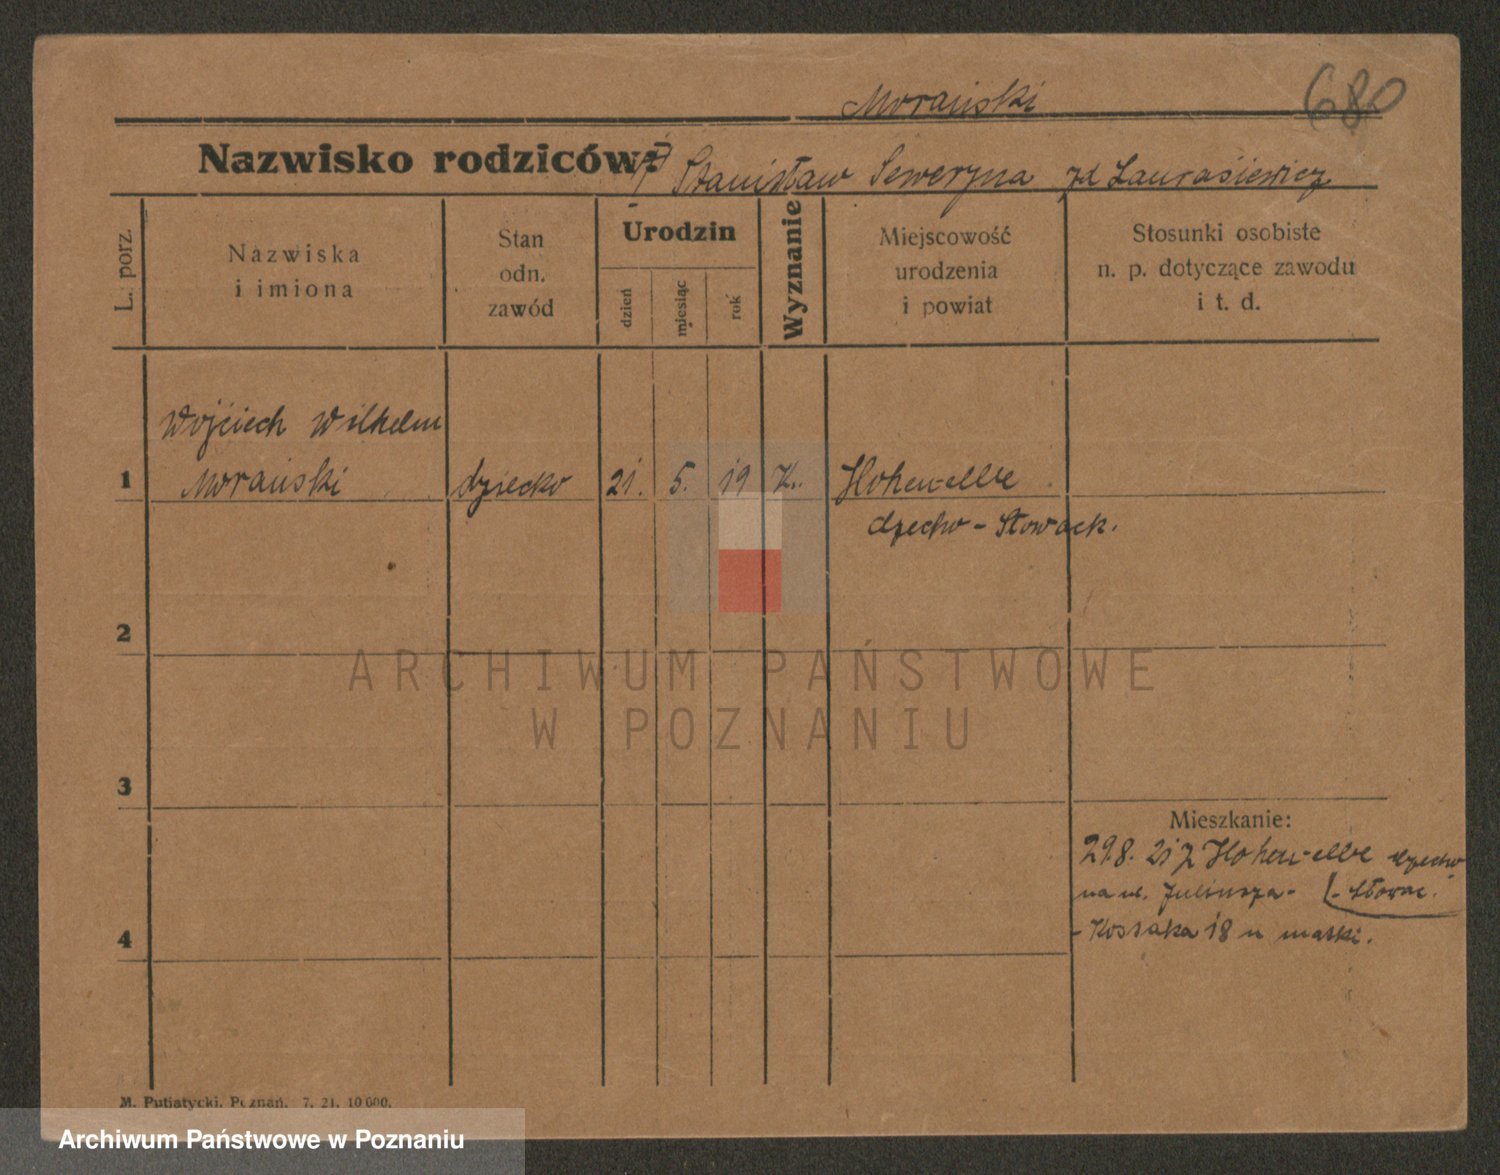 Morański
680
Nazwisko rodziców:
Stanisław Seweryna zd Laurasiewicz
L. porz.
Nazwiska
i imiona
Stan
odn.
zawód
Urodzin
dzień
miesiąc
rok
Wyznanie
Miejscowość
urodzenia
i powiat
Stosunki osobiste
n. p. dotyczące zawodu
i t. d.
Wojciech Wilhelm
1 Morański dziecko 21. 5. 19 K. Hohen-elbe
dzecho-Słowack.
2
3
4
Mieszkanie:
29.8. 21 z Hohen-elbe dzecho
na ul. Juliusza- -Słowac.
-Kossaka 18 u matki.
ARCHIWUM PAŃSTWOWE
W POZNANIU
M. Putiatycki, Poznań. 7. 21. 10 000.
Archiwum Państwowe w Poznaniu